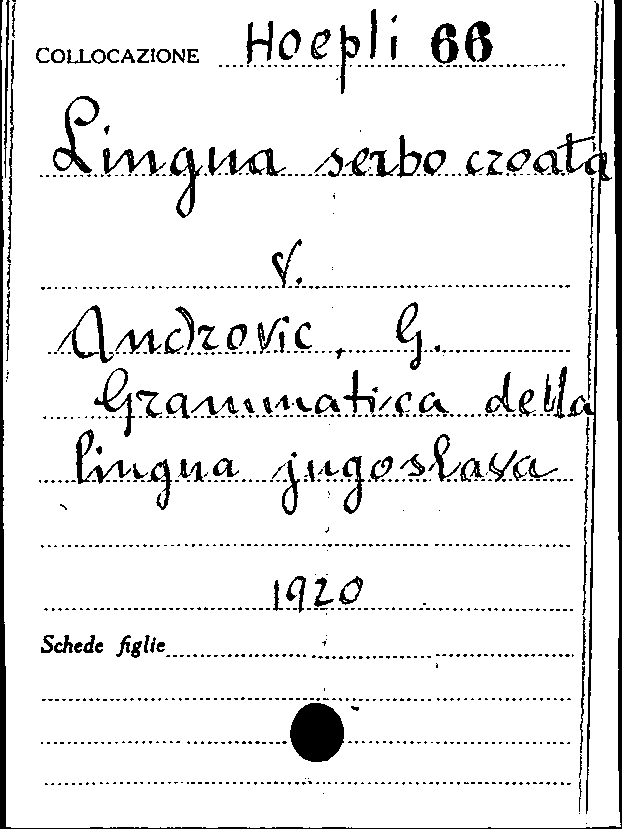 COLLOCAZIONE Hoepli 66
Lingua serbo croata
v.
Androvic, G.
Grammatica della
lingua jugoslava
1920
Schede figlie